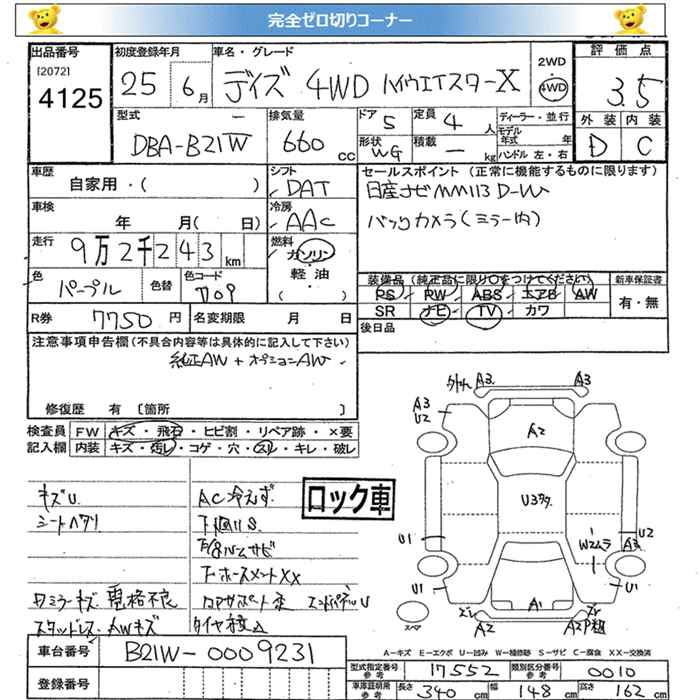 完全ゼロ切りコーナー
出品番号 初度登録年月 車名・グレード 2WD 評価点
[2072] 4125 25 6月 デイズ 4WD ハイウエイスターX 4WD 3.5
型式 排気量 ドア 5 定員 4人 ディーラー・並行 外装 内装
DBA-B21W 660cc 形状 WG 積載 ー kg モデル年式 年 ハンドル 左・右 D C
車歴 シフト セールスポイント(正常に機能するものに限ります)
自家用・( ) DAT 日産ナビ MM113D-W
車検 冷房 バックカメラ(ミラー内)
年 月( 日) AAC
走行 9万2千243km 燃料 ガソリン・軽油 ( )
色 パープル 色替 色コード 装備品(純正品に限り○をつけてください) 新車保証書
PS PW ABS エアB AW 有・無
SR ナビ TV カワ
R券 7750円 名変期限 月 日 後日品
注意事項申告欄(不具合内容等は具体的に記入して下さい)
純正AW+オプションAW
修復歴 有 [箇所 ]
検査員 FW キズ・飛石・ヒビ割・リペア跡・×要
記入欄 内装 キズ・汚レ・コゲ・穴・スレ・キレ・破レ
キズU AC冷えず ロック車
シートヘタリ 下廻りS
ワミラーキズ 電格不良 コアサポート歪 エンドパネルU
スタッドレス AWキズ
外れ A3 A3
A3 U2
A2
U3タタ
U1
W2ムラ
U2
A3
U1
A1
ズレ ズレ
A2 A2P割
スペア
A-キズ E-エクボ U-凹み W-補修跡 S-サビ C-腐食 XX-交換済
車台番号 B21W-0009231
型式指定番号 参考 17552 類別区分番号 参考 0010
登録番号
車庫証明用 参考 長さ 340cm 幅 148cm 高さ 162cm